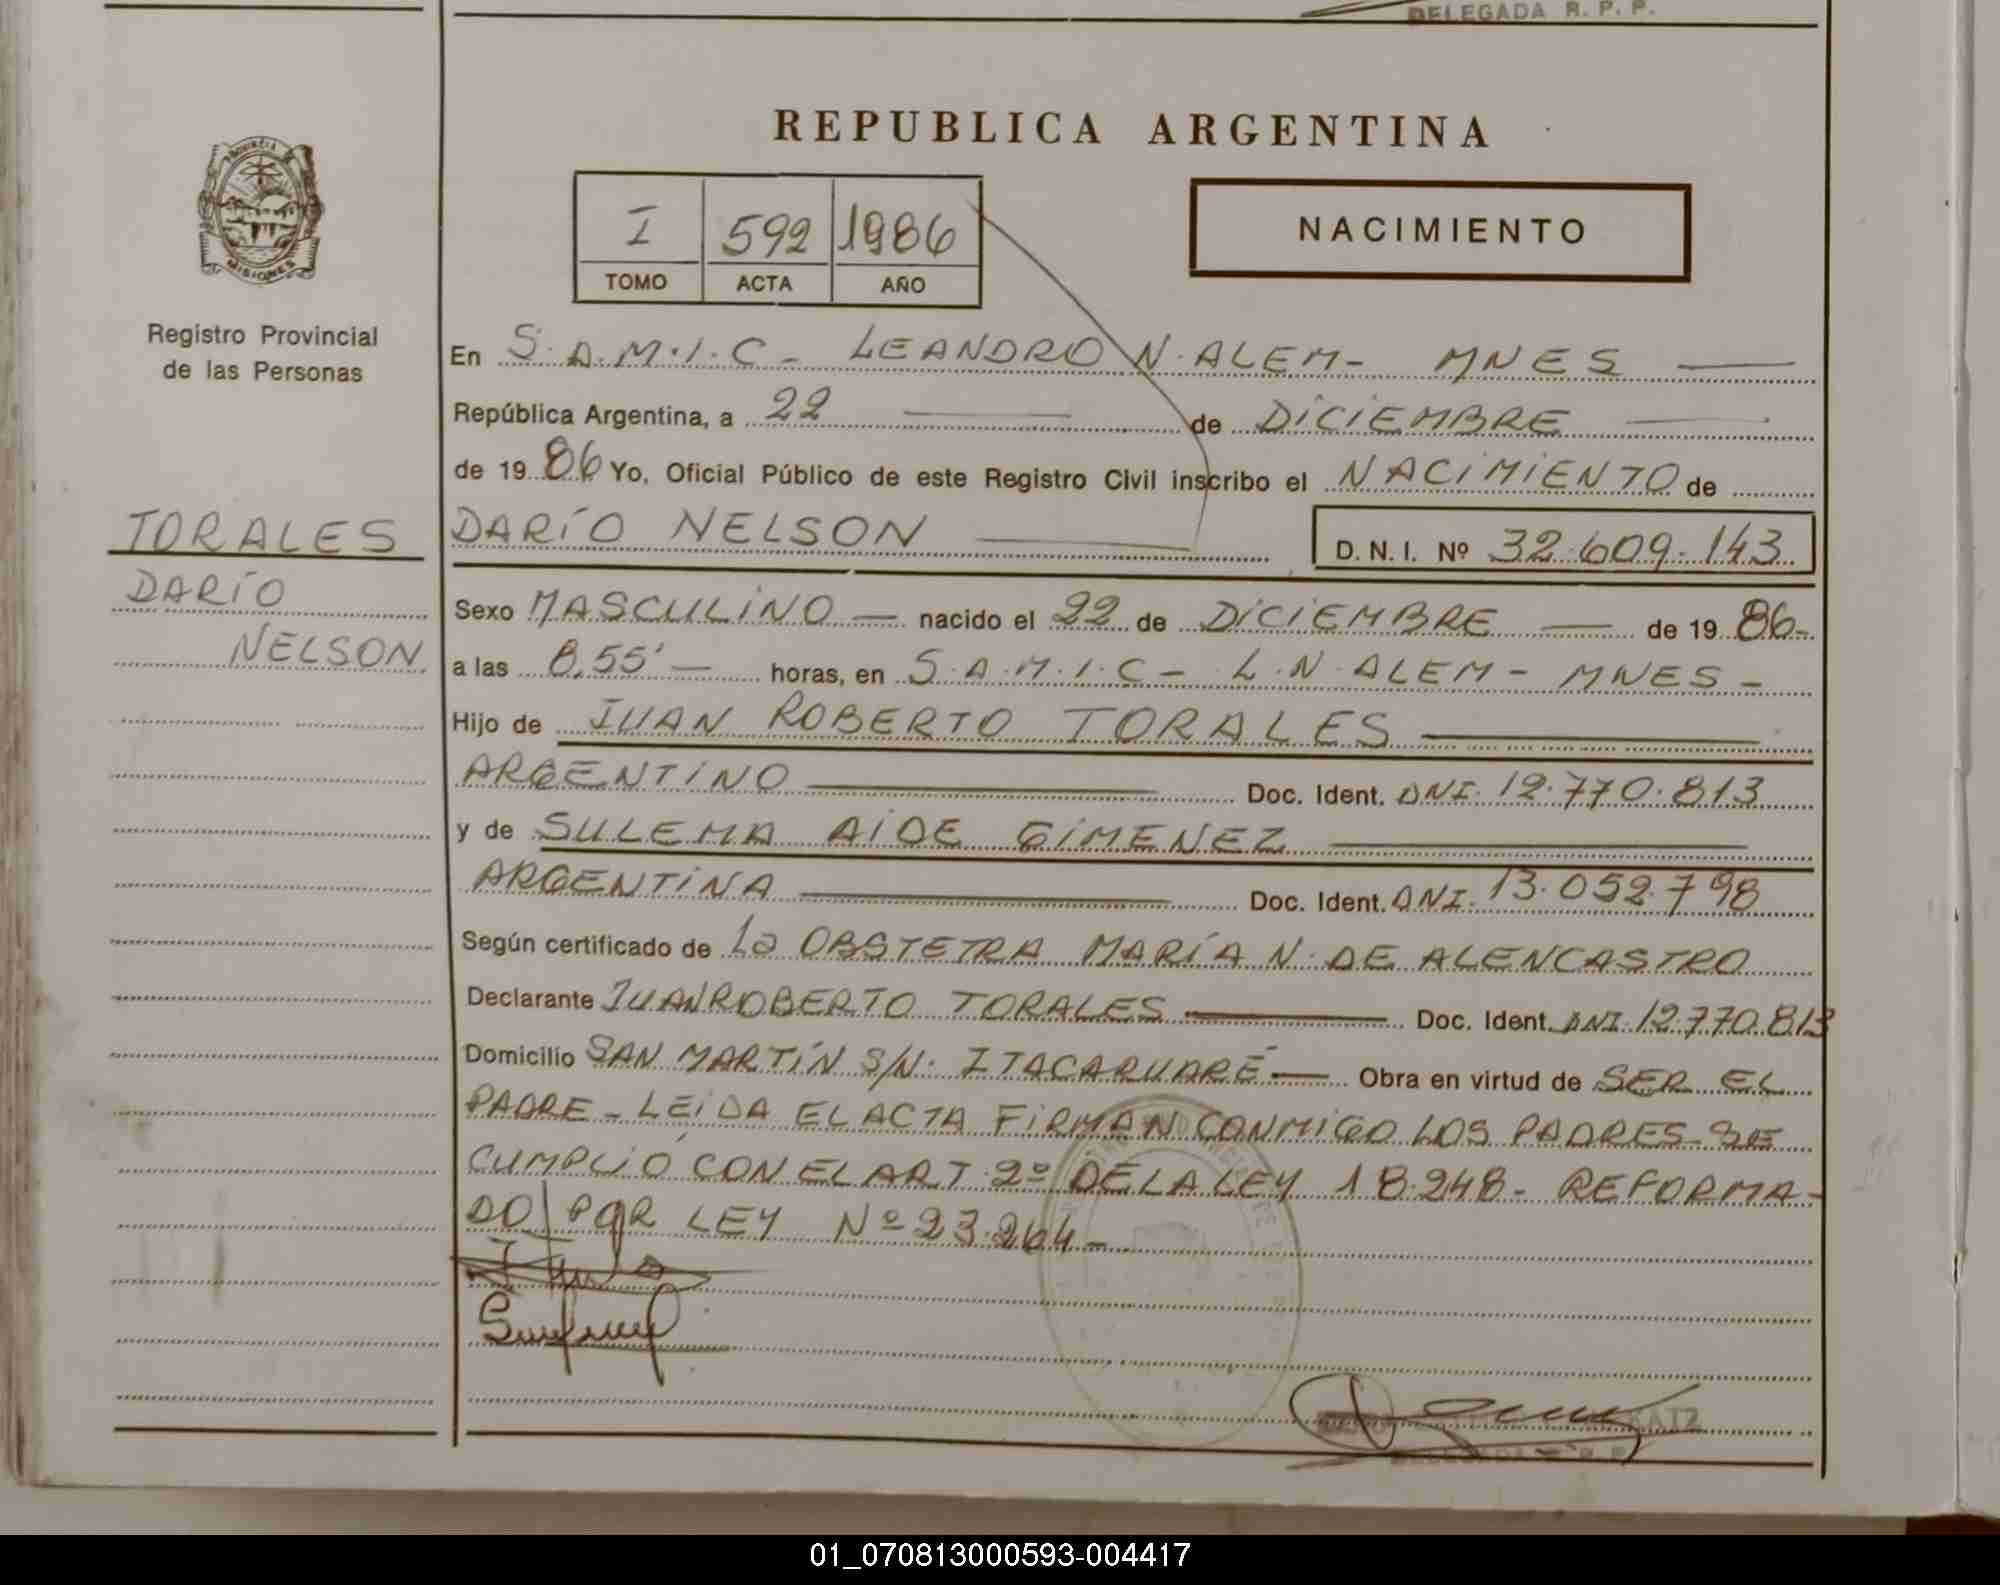 DELEGADA R. P. P.
REPUBLICA ARGENTINA
PROVINCIA DE
MISIONES
I 592 1986
TOMO ACTA AÑO
NACIMIENTO
Registro Provincial
de las Personas
En S.A.M.I.C - LEANDRO N. ALEM - MNES
República Argentina, a 22 de DICIEMBRE
de 1986 Yo, Oficial Público de este Registro Civil inscribo el NACIMIENTO de
TORALES
DARÍO
NELSON
DARÍO NELSON
D. N. I. Nº 32.609.143
Sexo MASCULINO nacido el 22 de DICIEMBRE de 1986-
a las 8,55' horas, en S.A.M.I.C - L.N. ALEM - MNES -
Hijo de JUAN ROBERTO TORALES
ARGENTINO Doc. Ident. DNI. 12.770.813
y de SULEMA AIDE GIMENEZ
ARGENTINA Doc. Ident. DNI. 13.052.798
Según certificado de La OBSTETRA MARÍA N. DE ALENCASTRO
Declarante JUAN ROBERTO TORALES Doc. Ident. DNI. 12.770.813
Domicilio SAN MARTÍN S/N. ITACARUARÉ Obra en virtud de SER EL
PADRE - LEIDA EL ACTA FIRMAN CONMIGO LOS PADRES SE
CUMPLIÓ CON EL ART. 2º DE LA LEY 18.248 - REFORMA-
DO POR LEY Nº 23.264 -
DELEGADA R. P.
01_070813000593-004417